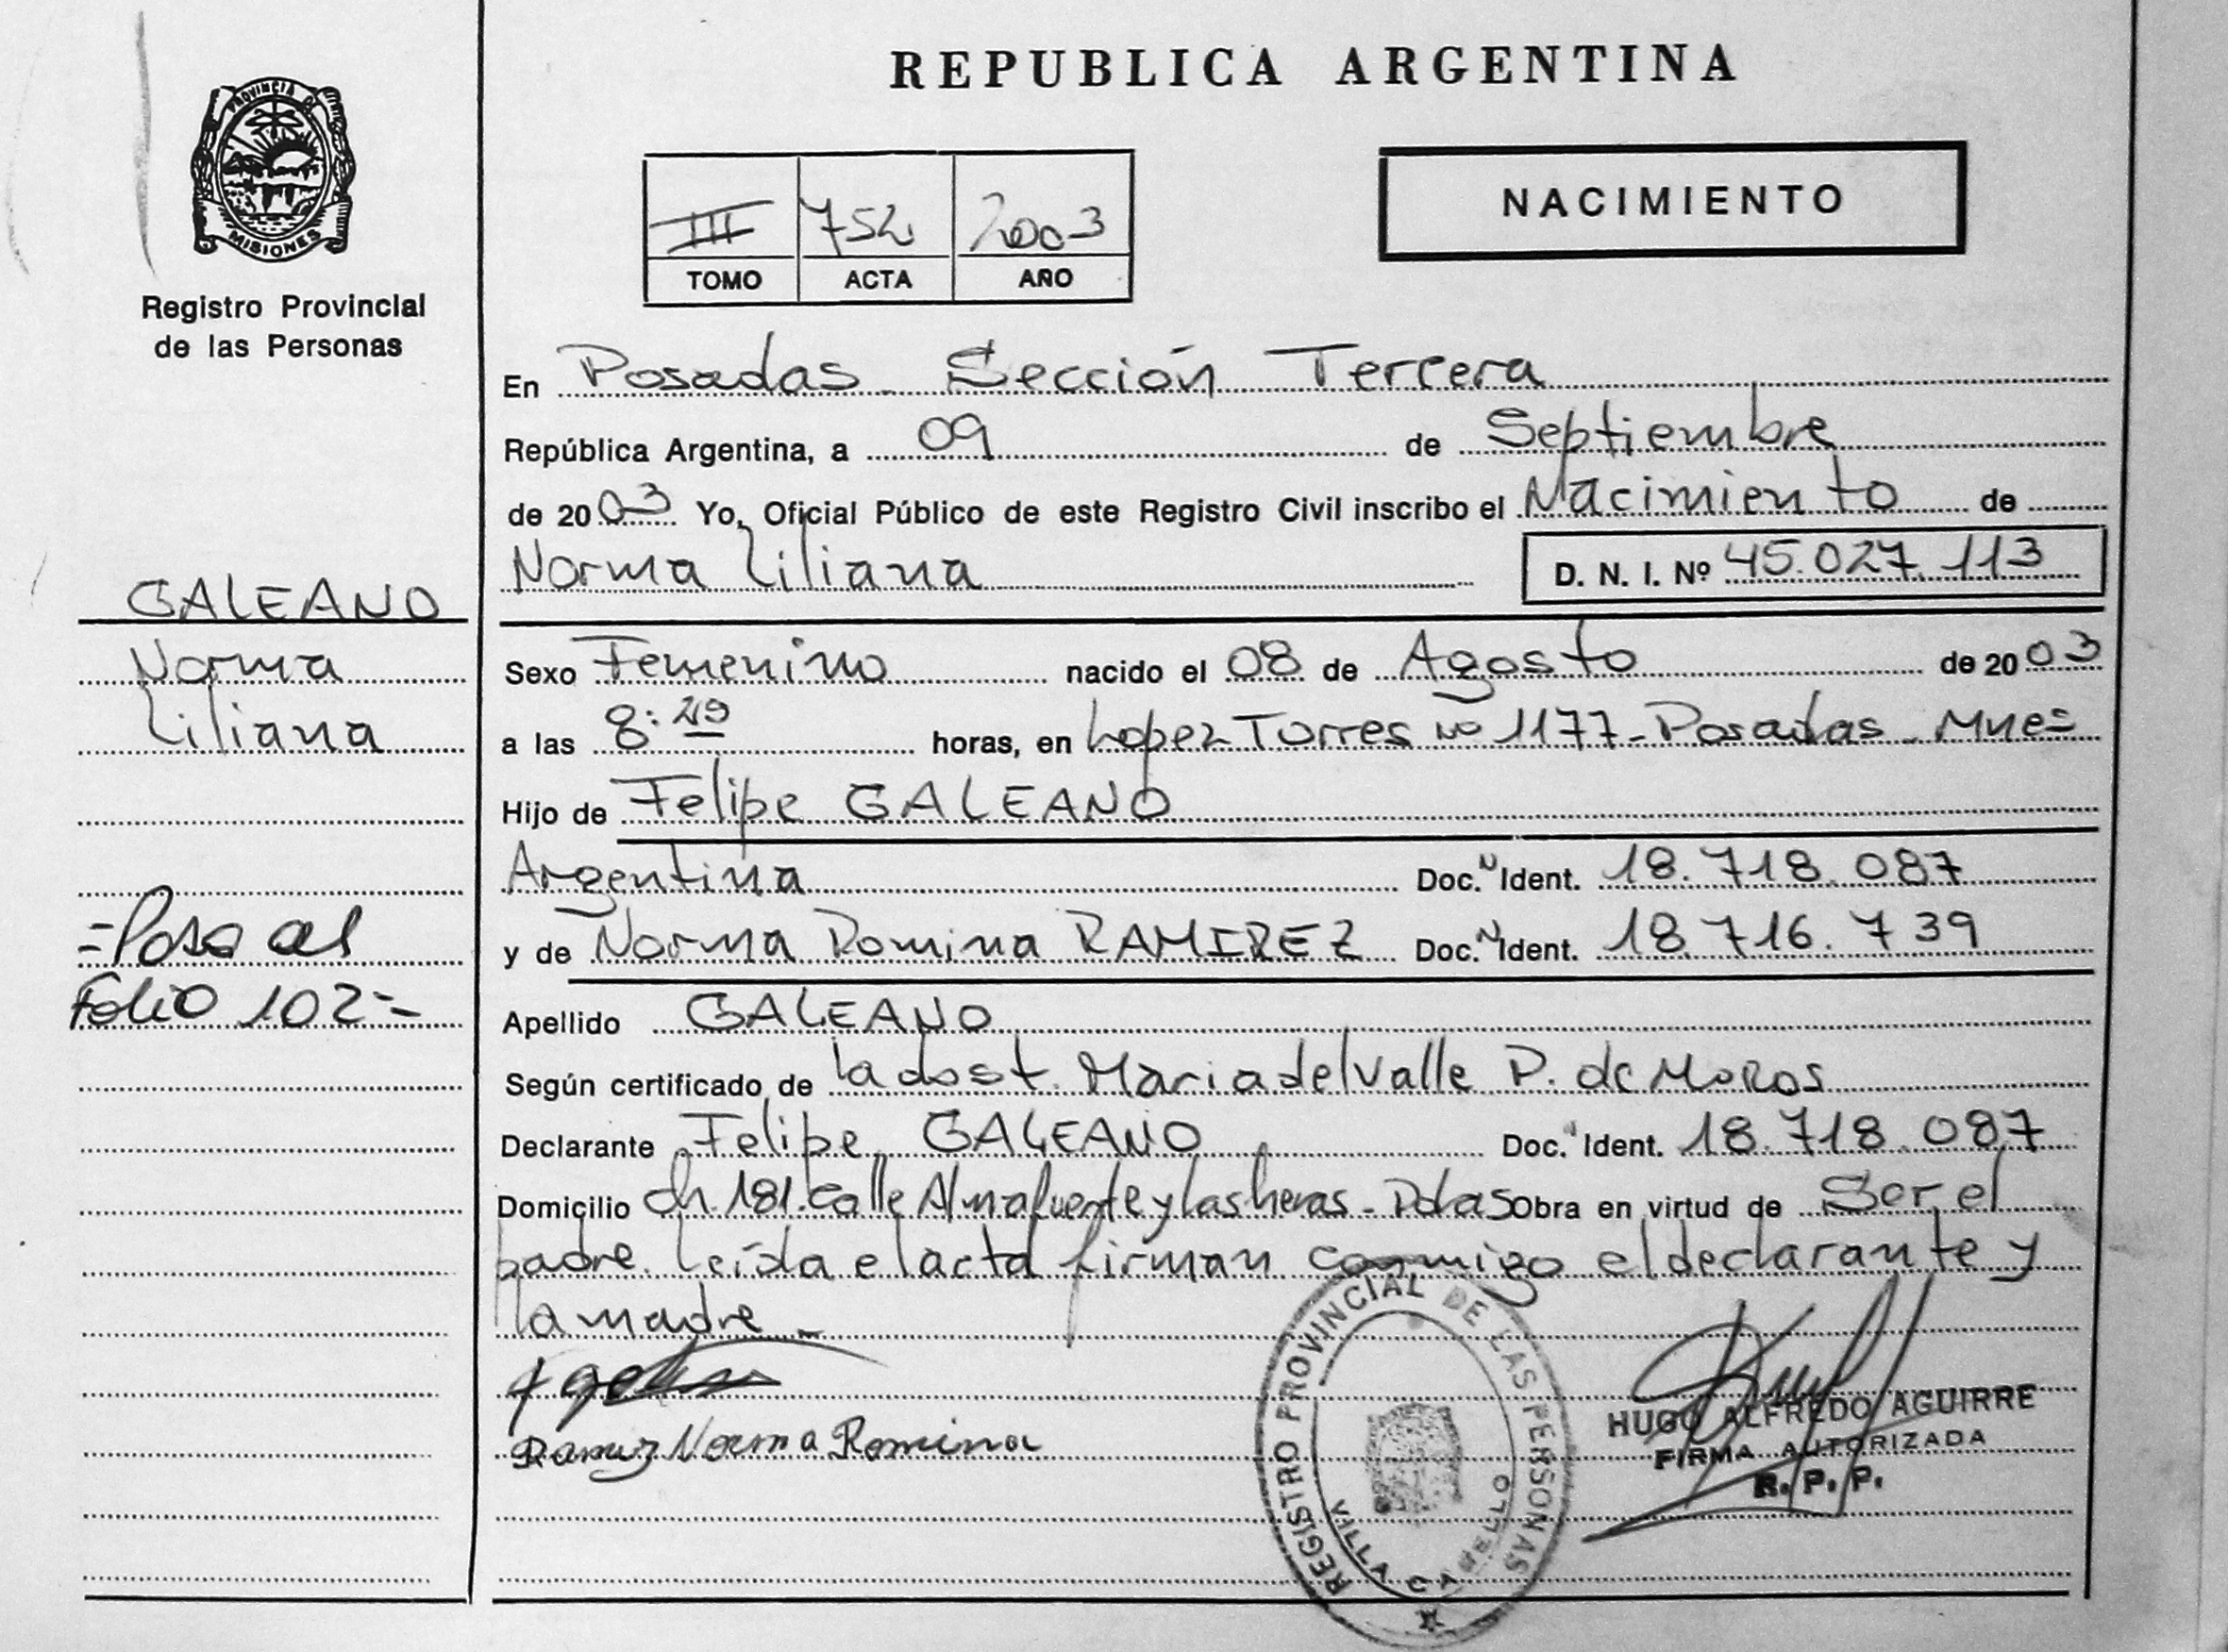 REPUBLICA ARGENTINA
PROVINCIA DE
MISIONES
Registro Provincial
de las Personas
III 752 2003
TOMO ACTA AÑO
NACIMIENTO
En Posadas - Sección Tercera
República Argentina, a 09 de Septiembre
de 2003 Yo, Oficial Público de este Registro Civil inscribo el Nacimiento de
Norma Liliana D. N. I. Nº 45.027.113
GALEANO
Norma
Liliana
Sexo Femenino nacido el 08 de Agosto de 2003
a las 8: horas, en Lopez Torres Nº 1177 - Posadas - Mnes
Hijo de Felipe GALEANO
Argentina Doc. N Ident. 18.718.087
y de Norma Romina RAMIREZ Doc. N Ident. 18.716.739
=Pasa al
Folio 102=
Apellido GALEANO
Según certificado de la obst. Maria del Valle P. de MoRos
Declarante Felipe GALEANO Doc. Ident. 18.718.087
Domicilio Ch. 181. Calle Almafuerte y las heras - Pdas Obra en virtud de Ser el
padre. Leída el acta firman conmigo el declarante y
la madre -
Ramirez Norma Romina
REGISTRO PROVINCIAL DE LAS PERSONAS
VILLA CABELLO
HUGO ALFREDO AGUIRRE
FIRMA AUTORIZADA
R. P. P.